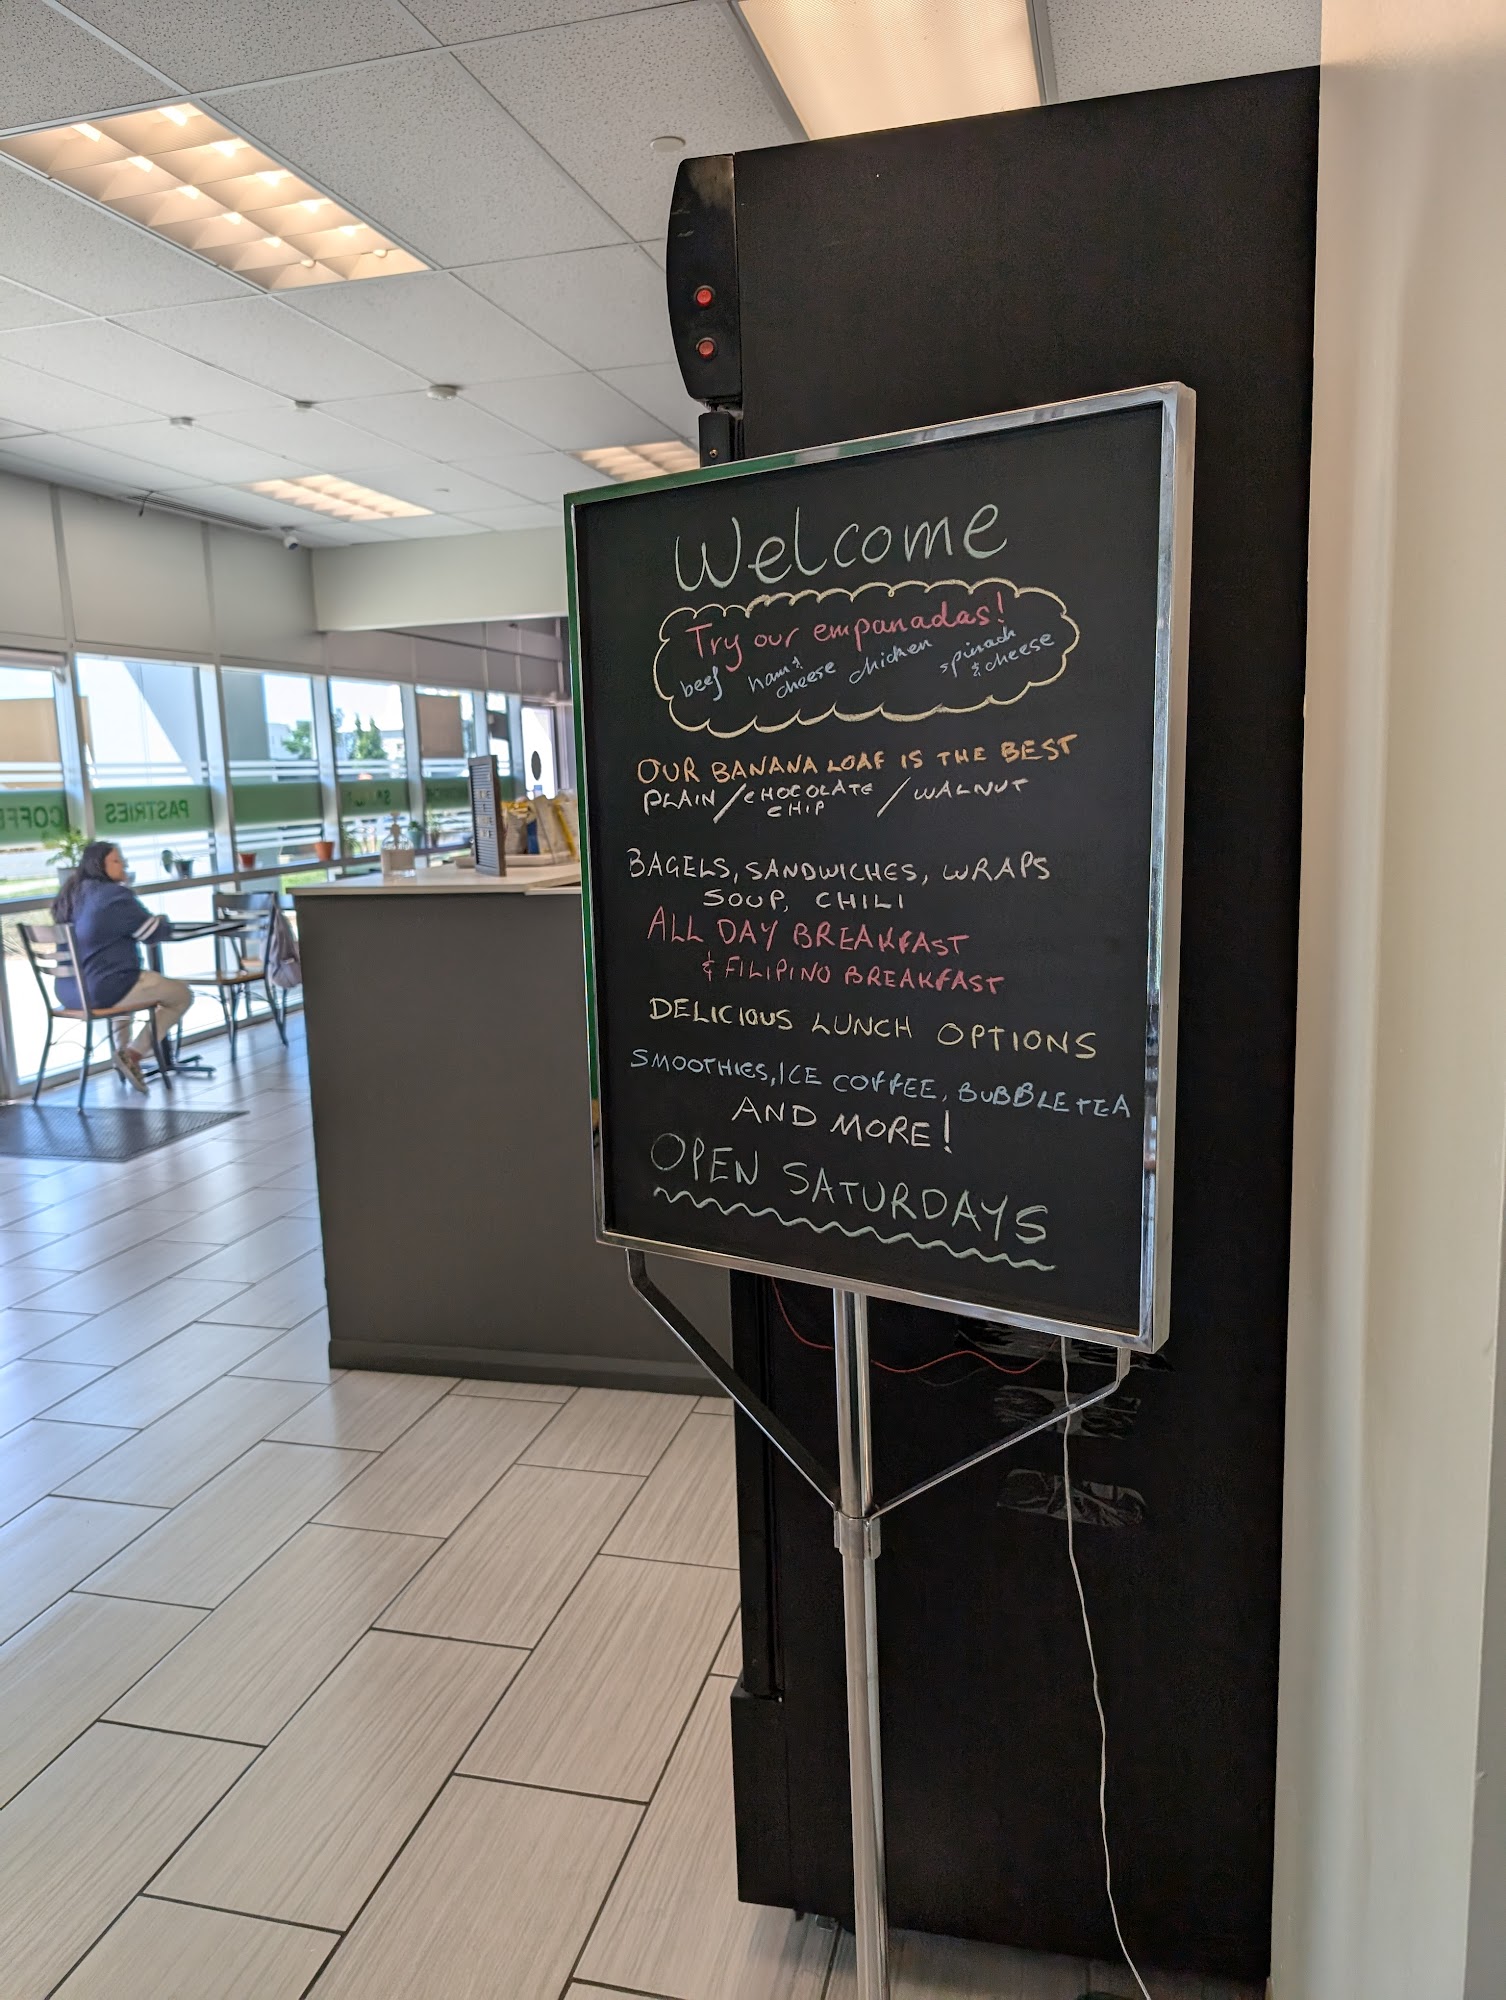 Welcome
Try our empanadas!
beef ham & cheese chicken spinach & cheese
OUR BANANA LOAF IS THE BEST
PLAIN / CHOCOLATE CHIP / WALNUT
BAGELS, SANDWICHES, WRAPS
SOUP, CHILI
ALL DAY BREAKFAST
& FILIPINO BREAKFAST
DELICIOUS LUNCH OPTIONS
SMOOTHIES, ICE COFFEE, BUBBLE TEA
AND MORE!
OPEN SATURDAYS
PASTRIES